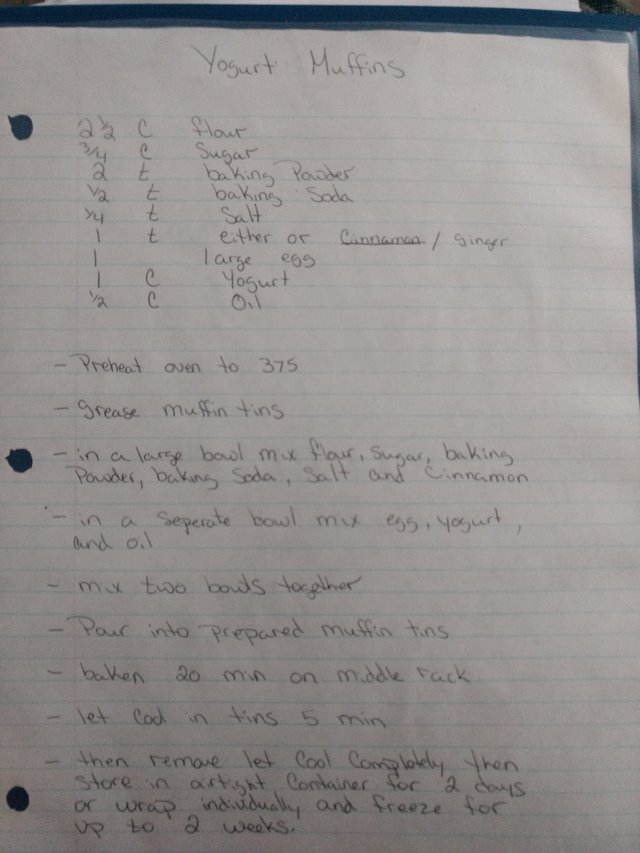 Yogurt Muffins
2 1/2 C flour
3/4 C Sugar
2 t baking Powder
1/2 t baking Soda
1/4 t Salt
1 t either or Cinnamon / ginger
1 large egg
1 C Yogurt
1/2 C Oil
- Preheat oven to 375
- grease muffin tins
- in a large bowl mix flour, Sugar, baking
Powder, baking Soda, Salt and Cinnamon
- in a seperate bowl mix egg, yogurt,
and oil
- mix two bowls together
- Pour into prepared muffin tins
- baken 20 min on middle rack
- let Cool in tins 5 min
- then remove let Cool Completely then
store in airtight Container for 2 days
or wrap individually and freeze for
up to 2 weeks.